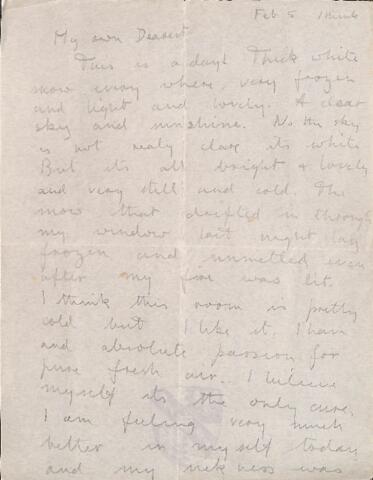 Feb 5 I think
My own Dearest
This is a day! Thick white
snow every where, very frozen
and light and lovely. A clear
sky and sunshine. No the sky
is not realy clear its white
But its all bright & lovely
and very still and cold. The
snow that drifted in through
my window last night lay
frozen and unmelted even
after my fire was lit.
I think this room is pretty
cold but I like it. I have
and absolute passion for
pure fresh air. I believe
myself its the only cure.
I am feeling very much
better in myself today
and my sickness was